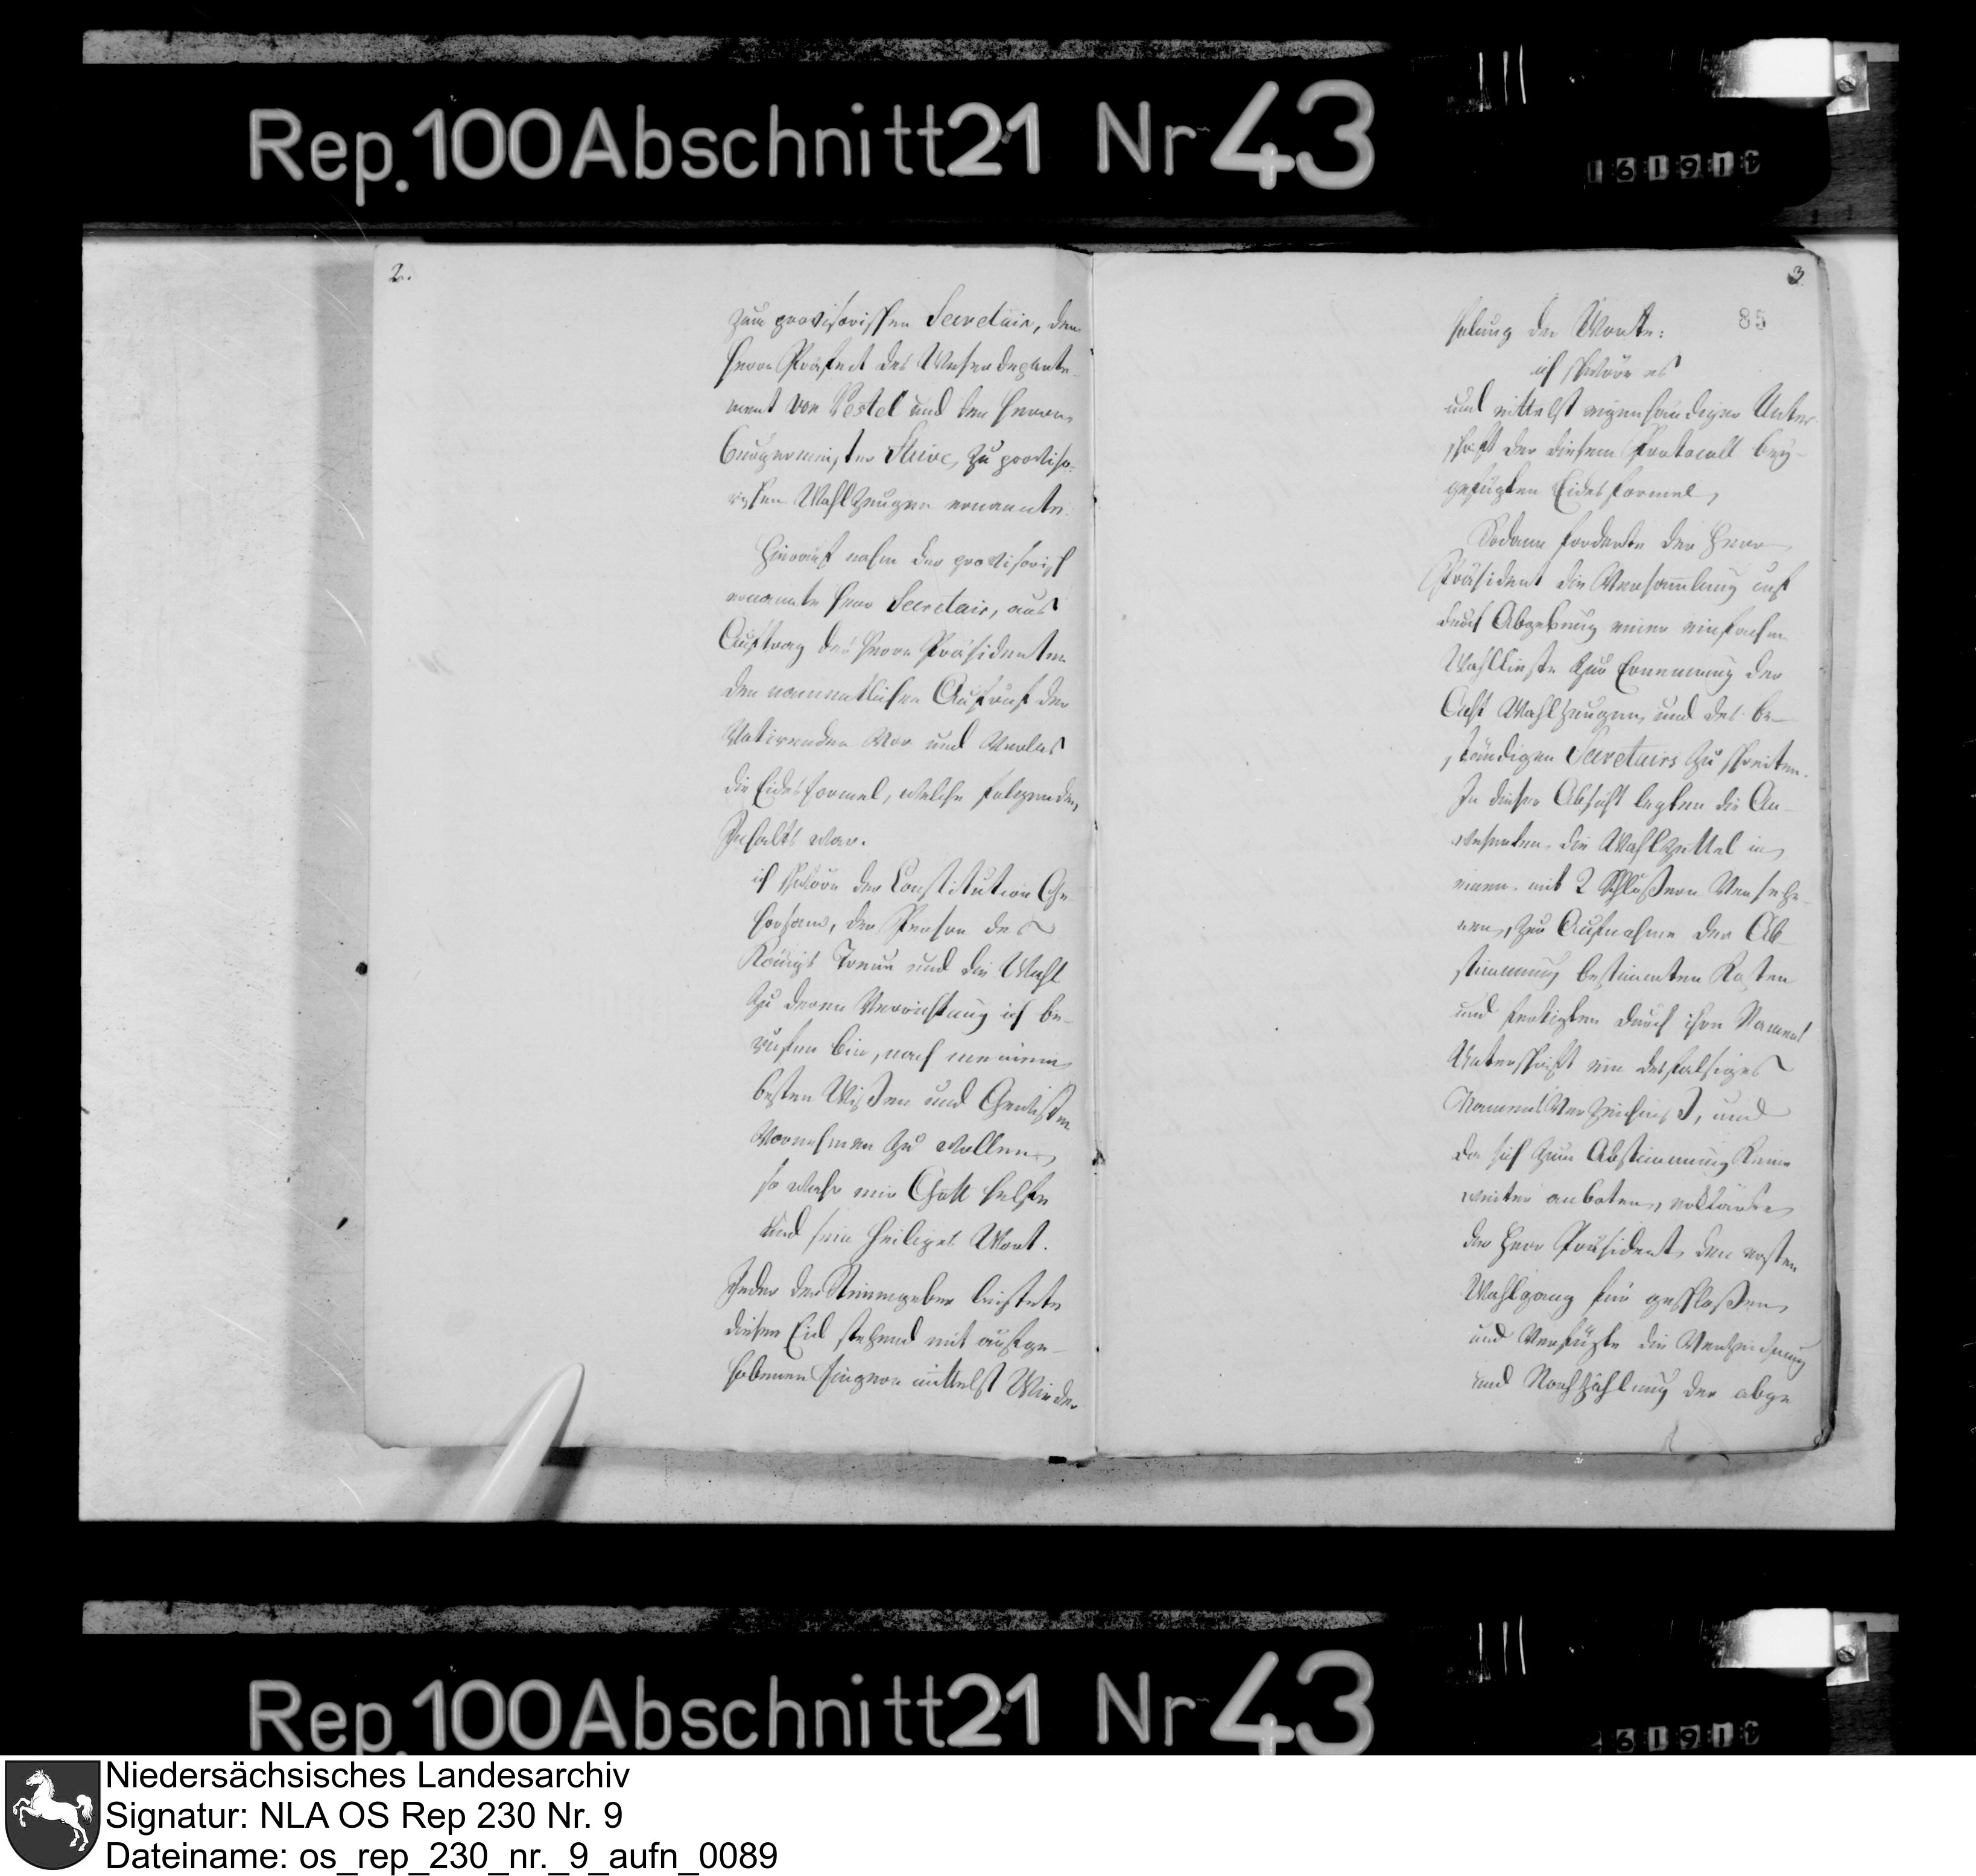 Rep. 100 Abschnitt 21 Nr 43
16191
2.
zum provisorischen Secretair, den
Herrn Präfect des Weser departe-
ment von Pestel und den Herrn
Burgermeister Stüve, zu proviso-
rischen Wahlzeugen ernannte.
Hierauf nahm der provisorisch
ernannte Herr Secretair, aus
Auftrag des Herrn Präsidenten
den namentlichen Aufruf der
Votirenden vor und verlas
die Eidesformel, welche folgenden
Inhalts war.
ich schwöre der Constitution Ge-
horsam, der Person des
Königs Treue und die Wahl
zu deren Verrichtung ich be-
rufen bin, nach meinem
besten Wißen und Gewißen
vornehmen zu wollen,
so wahr mir Gott helfe
und sein heiliges Wort.
Jeder der Stimmgeber leistete
diesen Eid stehend mit aufge-
hobenen Fingern mittelst Wieder
3
85
holung der Worte:
ich schwöre es
und mittelst eigenhändiger Unter
schrift der diesem Protocoll bey-
gefügten Eidesformel,
Sodann forderte der Herr
Präsident die Versammlung auf
durch Abgebung einer einfachen
Wahlliste zur Ernennung der
Acht Wahlzeugen, und des be-
ständigen Secretairs zu schreiten.
In dieser Absicht legten die An-
wesenden die Wahlzettel in
einen mit 2 Schlößern Versehe-
nen, zur Aufnahme der Ab-
stimmung bestimmten Kasten
und fertigten durch ihre Namens
Unterschrift ein desfalsiges
Namens Verzeichniß, und
da sich zum Abstimmung Keine
weiter anboten, erklärte
der Herr Präsident, den ersten
Wahlgang für geschloßen,
und verfügte die Verzeichnung
und Nachzählung der abge
Rep. 100 Abschnitt 21 Nr 43
6191
Niedersächsisches Landesarchiv
Signatur: NLA OS Rep 230 Nr. 9
Dateiname: os_rep_230_nr._9_aufn_0089